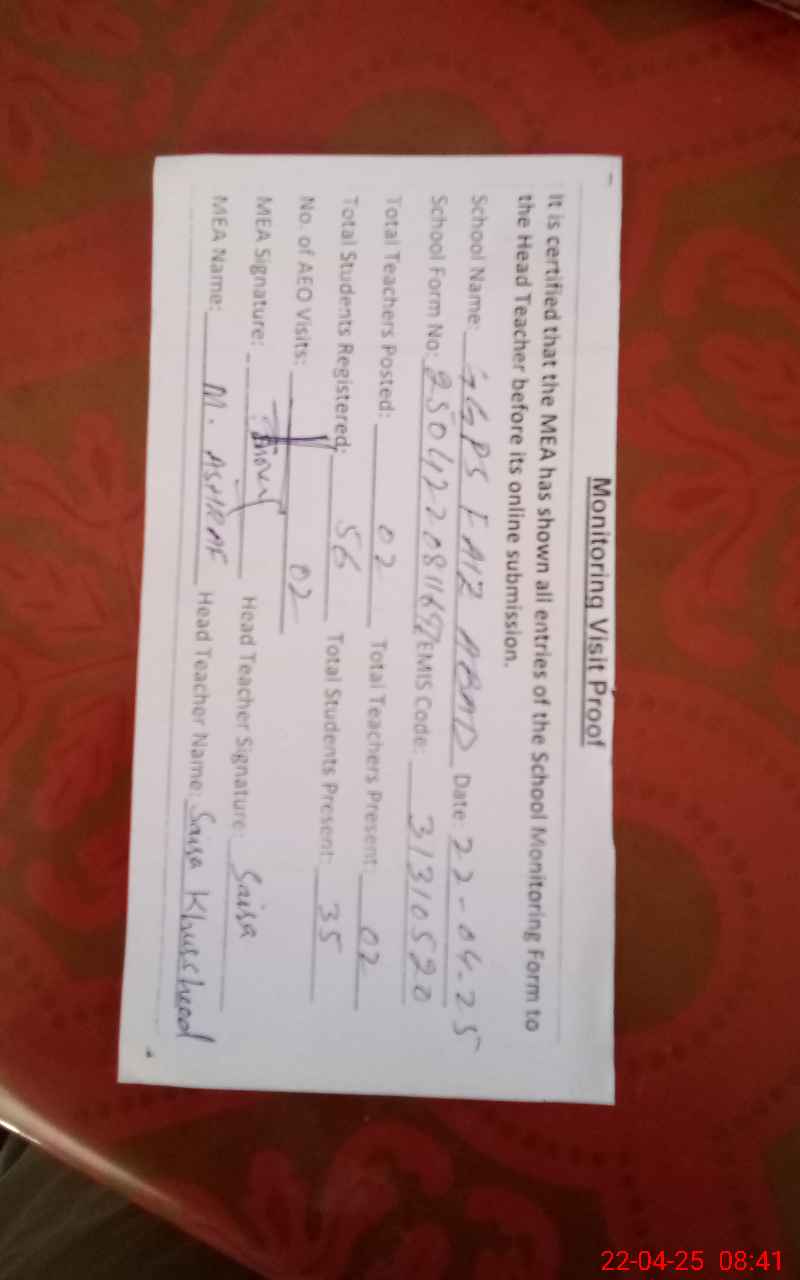 Monitoring Visit Proof
It is certified that the MEA has shown all entries of the School Monitoring Form to
the Head Teacher before its online submission.
School Name: GGPS FAIZ ABAD Date: 22-04-25
School Form No: EMIS Code: 31310520
Total Teachers Posted: 02 Total Teachers Present: 02
Total Students Registered: 56 Total Students Present: 35
No. of AEO Visits: 02
MEA Signature: Head Teacher Signature: Saisa
MEA Name: M. ASHRAF Head Teacher Name: Saisa Khursheed
22-04-25 08:41